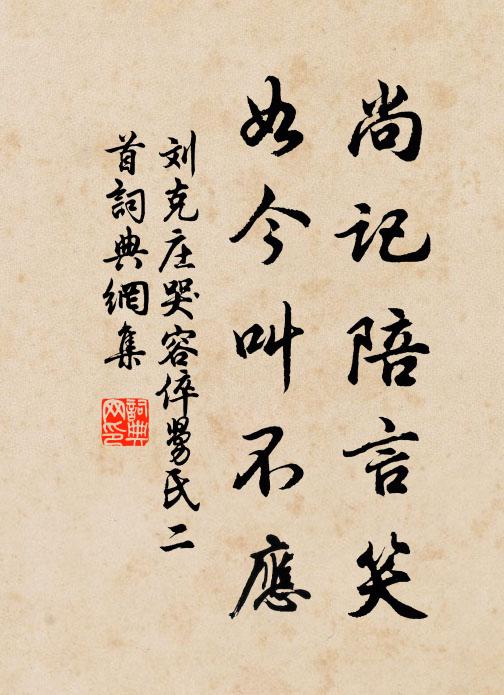 尚记陪言笑
如今叫不應
刘克庄哭容倅舅氏二
首詞典網集
詞典网印